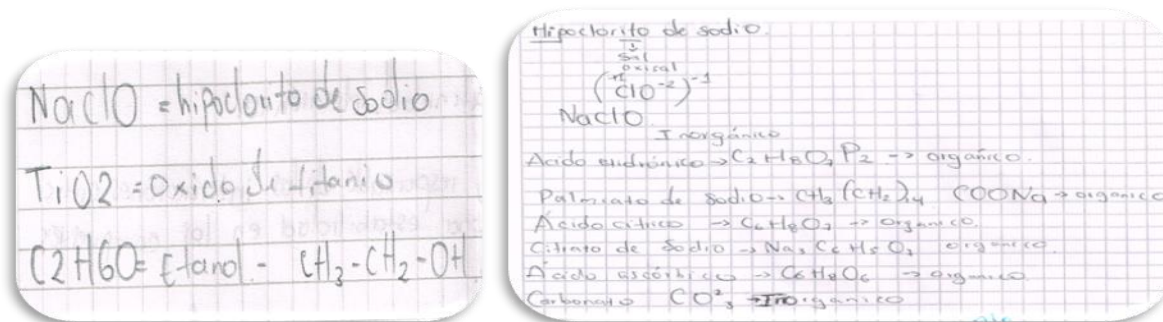 NaClO = hipoclorito de sodio
TiO2 = Oxido de titanio
C2H6O = Etanol - CH3-CH2-OH
Hipoclorito de sodio.
Sal
oxisal
(+1 ClO-2)-1
NaClO
Inorgánico
Acido etidrónico → C2H8O7P2 → organico.
Palmiato de Sodio → CH3(CH2)14 COONa → organico
Ácido citrico → C6H8O7 → organico.
Citrato de Sodio → Na3C6H5O7 organico.
Ácido ascórbico → C6H8O6 → organico
Carbonato CO²3 → Inorganico